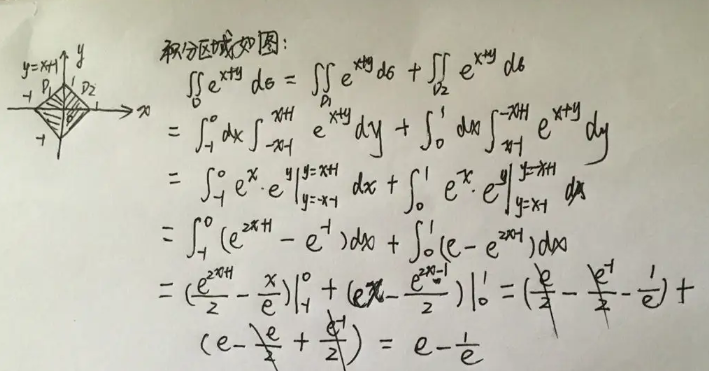 积分区域如图:
y=x+1 y D1 1 D2 -1 0 1 x -1
∬_D e^{x+y} dσ = ∬_{D1} e^{x+y} dσ + ∬_{D2} e^{x+y} dσ
= ∫_{-1}^{0} dx ∫_{-x-1}^{x+1} e^{x+y} dy + ∫_{0}^{1} dx ∫_{x-1}^{-x+1} e^{x+y} dy
= ∫_{-1}^{0} e^x · e^y |_{y=-x-1}^{y=x+1} dx + ∫_{0}^{1} e^x · e^y |_{y=x-1}^{y=-x+1} dx
= ∫_{-1}^{0} (e^{2x+1} - e^{-1}) dx + ∫_{0}^{1} (e - e^{2x-1}) dx
= (e^{2x+1}/2 - x/e) |_{-1}^{0} + (ex - e^{2x-1}/2) |_{0}^{1} = (e/2 - e^{-1}/2 - 1/e) +
(e - e/2 + e^{-1}/2) = e - 1/e